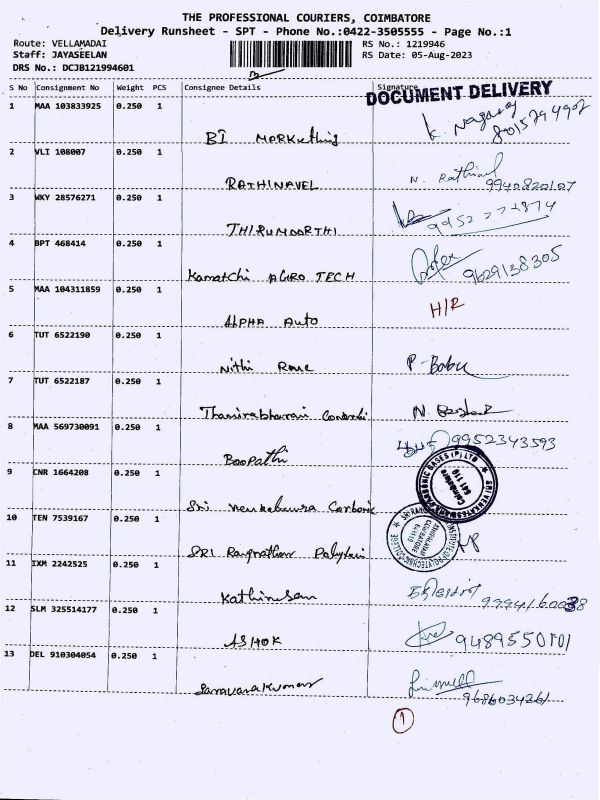 THE PROFESSIONAL COURIERS, COIMBATORE
Delivery Runsheet - SPT - Phone No.:0422-3505555 - Page No.:1
Route: VELLAMADAI
Staff: JAYASEELAN
DRS No.: DCJB121994601
RS No.: 1219946
RS Date: 05-Aug-2023
S No Consignment No Weight PCS Consignee Details Signature
DOCUMENT DELIVERY
1 MAA 103833925 0.250 1
BI
8015794902
2 VLI 108007 0.250 1
RATHINAVEL
N.
9940820107
3 WKY 28576271 0.250 1
THIRUMOORTHI
4 BPT 468414 0.250 1
Kamatchi AGRO TECH
9629138305
5 MAA 104311859 0.250 1
ALPHA Auto
H/R
6 TUT 6522190 0.250 1
Nithi
P-Babu
7 TUT 6522187 0.250 1
N
8 MAA 569730091 0.250 1
Boopathi
9952343593
9 CNR 1664208 0.250 1
Sri Carbonic
641 110
10 TEN 7539167 0.250 1
SRI
11 IXM 2242525 0.250 1
Kathiresan
12 SLM 325514177 0.250 1
ASHOK
13 DEL 910304054 0.250 1
Saravanakumar
9686034261
1